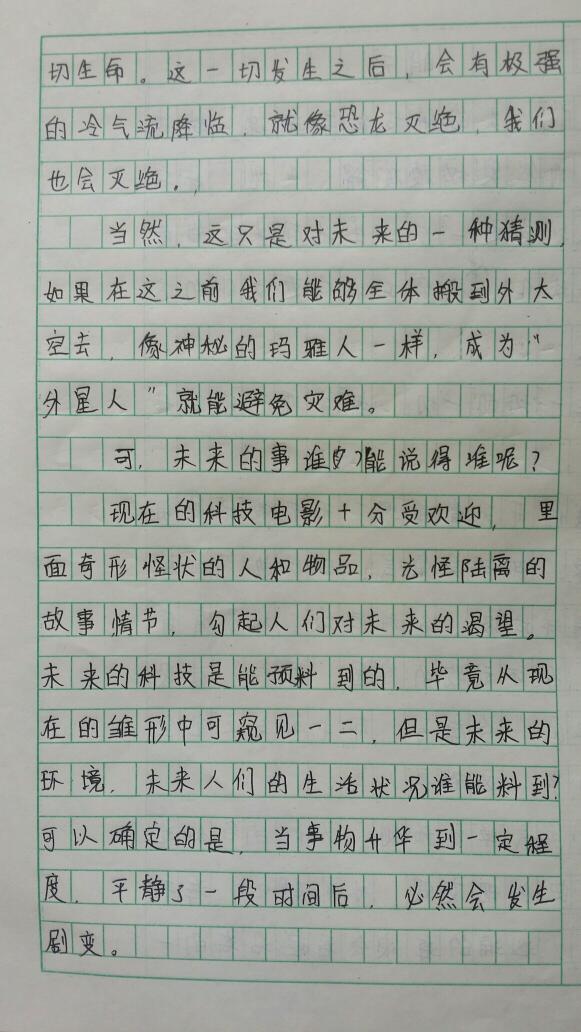 切生命。这一切发生之后，会有极强
的冷气流降临，就像恐龙灭绝，我们
也会灭绝。
当然，这只是对未来的一种猜测，
如果在这之前我们能够全体搬到外太
空去，像神秘的玛雅人一样，成为“
外星人”就能避免灾难。
可，未来的事谁能说得准呢？
现在的科技电影十分受欢迎，里
面奇形怪状的人和物品，光怪陆离的
故事情节，勾起人们对未来的渴望。
未来的科技是能预料到的，毕竟从现
在的雏形中可窥见一二，但是未来的
环境，未来人们的生活状况谁能料到？
可以确定的是，当事物升华到一定程
度，平静了一段时间后，必然会发生
剧变。